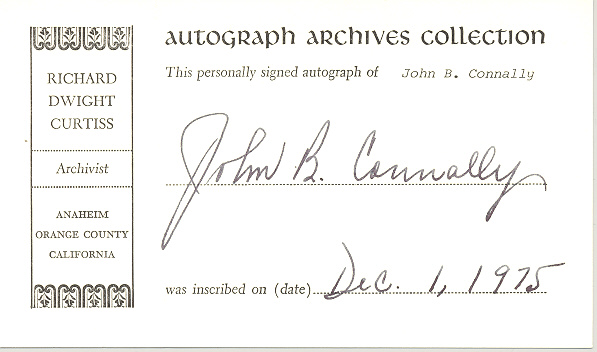 RICHARD
DWIGHT
CURTISS
Archivist
ANAHEIM
ORANGE COUNTY
CALIFORNIA
AUTOGRAPH ARCHIVES COLLECTION
This personally signed autograph of John B. Connally
John B. Connally
was inscribed on (date) Dec. 1, 1975